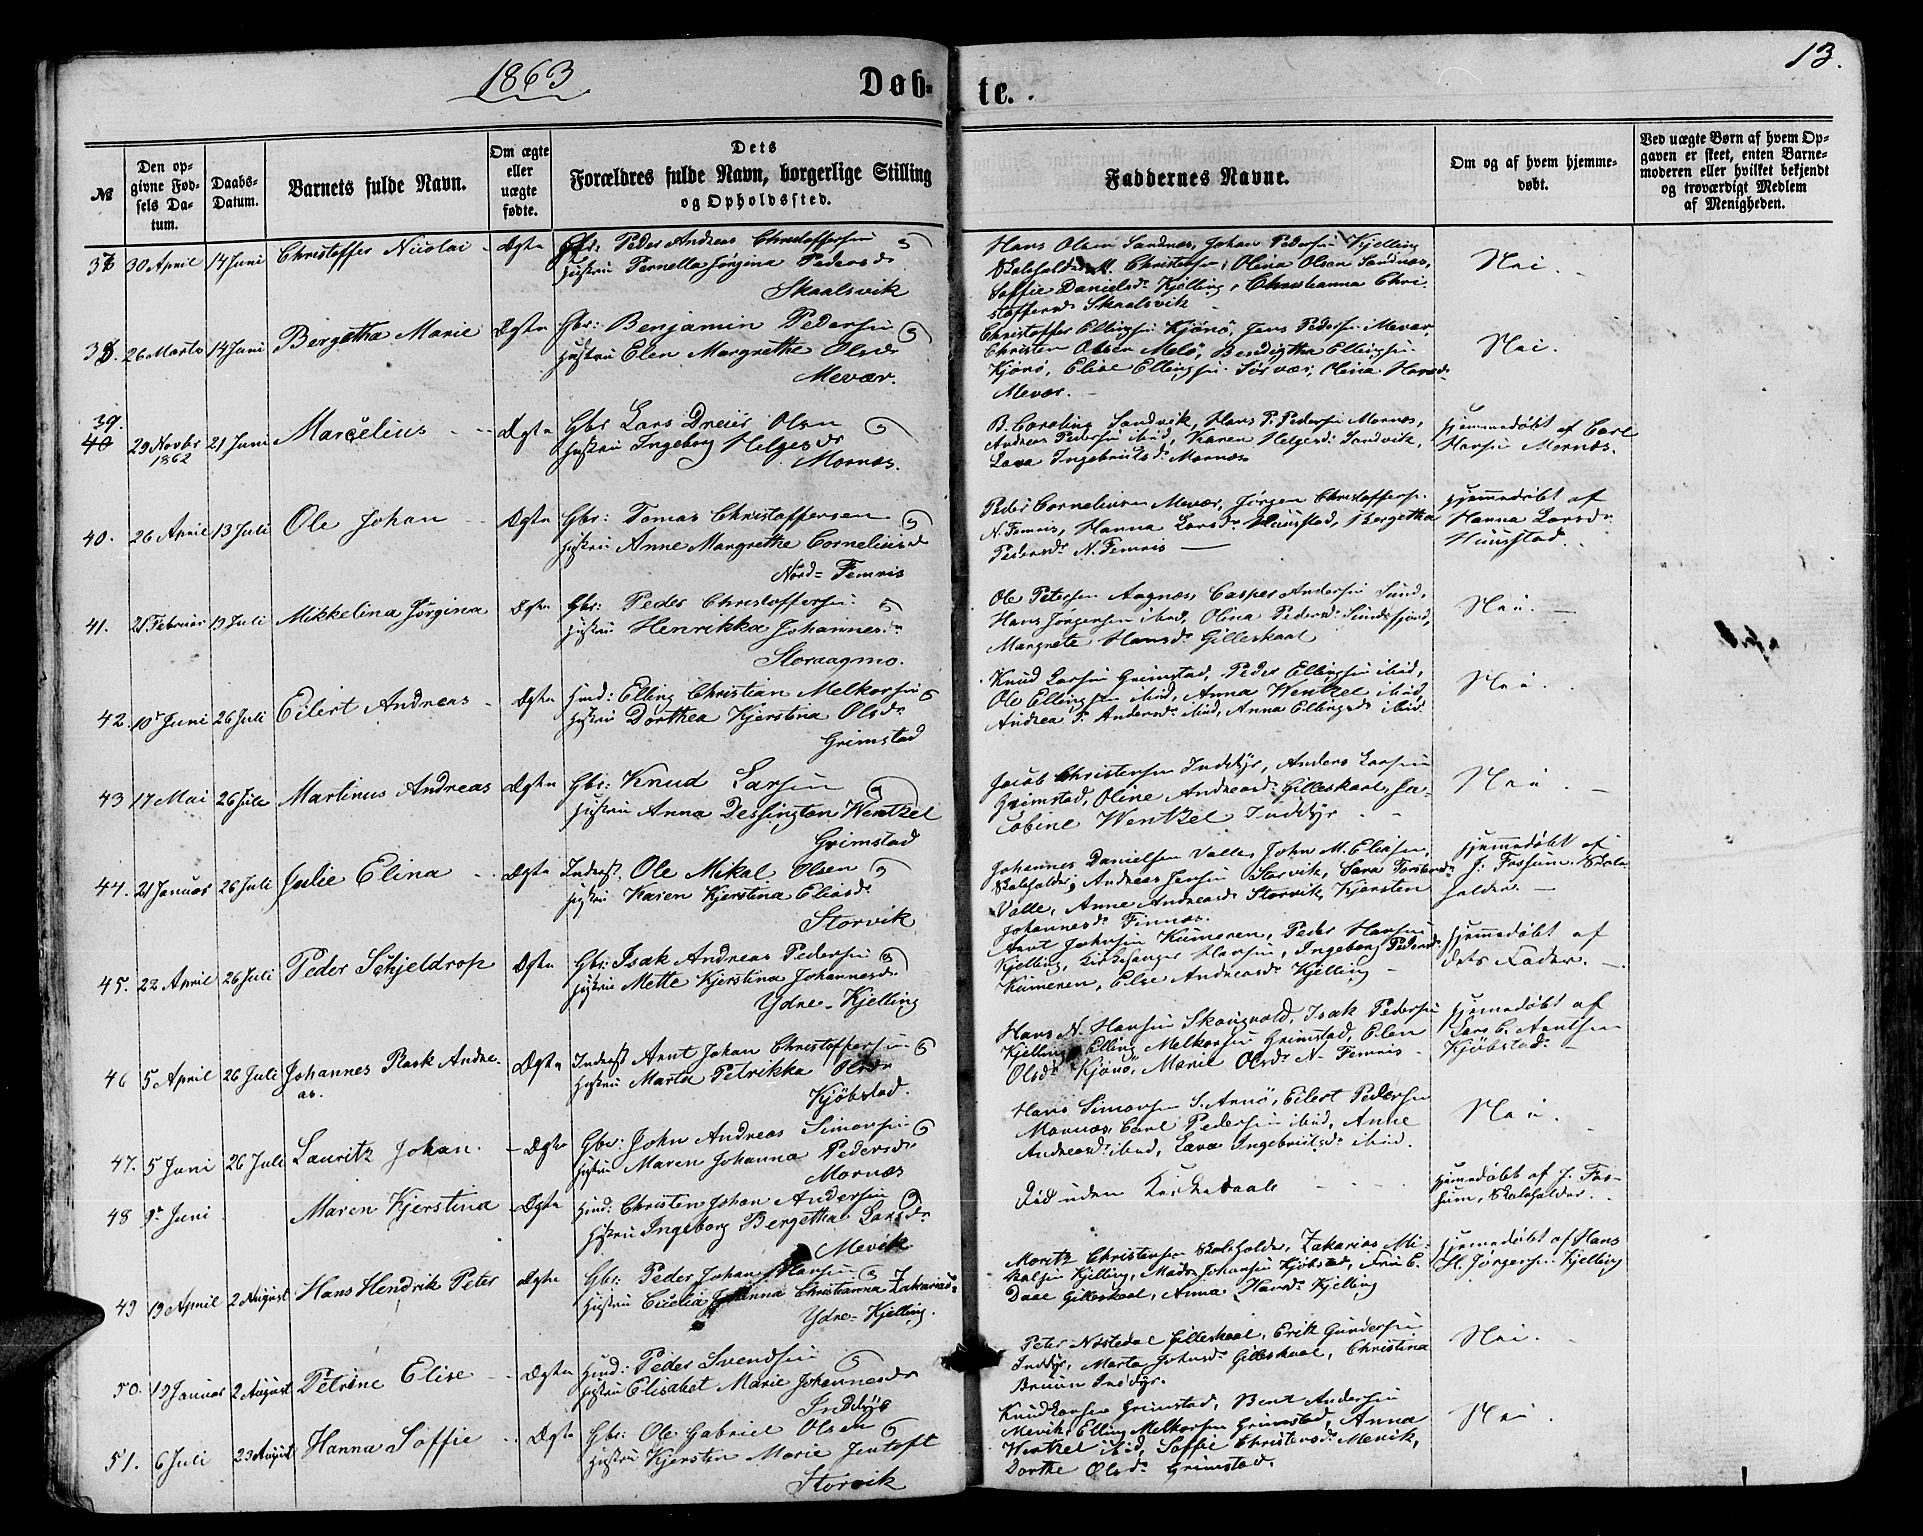 1863
Døb-
te.
13.
№
Den op-
givne Fød-
sels Da-
tum.
Daabs-
Datum.
Barnets fulde Navn.
Om ægte
eller
uægte
fødte.
Dets
Forældres fulde Navn, borgerlige Stilling
og Opholdssted.
Faddernes Navne.
Om og af hvem hjemme-
døbt.
Ved uægte Børn af hvem Op-
gaven er skeet, enten Barne-
moderen eller hvilket bekjendt
og troværdigt Medlem
af Menigheden.
30 April 14 Juni Christoffer Nicolai Ægte Gbr: Peder Andreas Christoffersen
Hustru Pernella Jørgina Pedersdr
Skaalsvik
Hans Olsen Sandnæs, Johan Pedersen Kjelling
Skoleholder M. Christensen, Olina Olsen Sandnæs,
Soffie Danielsdr Kjelling, Christianna Chri-
stoffersdr Skaalsvik
Nei.
38. 26 Marts 14 Juni Bergetha Marie Ægte Gbr: Benjamin Pedersen
Hustru Elen Margrethe Olsdr
Mevær.
Christoffer Ellingsen Kjønø, Jens Pedersen Mevær,
Christen Olsen Melø, Bendigtha Ellingsen
Kjønø, Elise Ellingsen Sørvær, Olina Hansdr
Mevær.
Nei.
39.
40 29 Novbr 21 Juni Marcelius Ægte Gbr Lars Dreier Olsen
1862
Hustru Ingeborg Helgesdr
Mornæs.
B. Caroling Sandvik, Hans P. Pedersen Mornæs,
Andreas Pedersen ibid, Karen Helgesdr Sandvik,
Lava Ingebrigtsdr Mornæs
Hjemmedøbt af Carl
Hansen Mornæs.
40. 26 April 13 Juli Ole Johan Ægte Gbr: Tomas Christoffersen
Hustru Anne Margrethe Corneliusdr
Nord-Femris
Peder Corneliusen Mevær, Jørgen Christoffersen
N. Femris, Hanna Larsdr Huustad, Bergetha
Pedersdr N. Femris
Hjemmedøbt af
Hanna Larsdr
Huustad.
41. 21 Februar 19 Juli Mikkelina Jørgina Ægte Gbr: Peder Christoffersen
Hustru Henrikka Johannesdr
Storaagmo.
Ole Petersen Aagnæs, Casper Andersen Sund,
Hans Jørgensen ibid, Olina Pedersdr Sundsfjord,
Margrete Hansdr Gilleskaal
Nei.
42. 10de Juni 26 Juli Eilert Andreas Ægte Huusmd: Elling Christian Melkorsen
Hustru Dorthea Kjerstina Olsdr
Grimstad
Knud Larsen Grimstad, Peder Ellingsen ibid,
Ole Ellingsen ibid, Anna Wentzel ibid,
Andrea P. Andersdr ibid, Anna Ellingsdr ibid
Nei.
43 17 Mai 26 Juli Martinus Andreas Ægte Gbr: Knud Larsen
Hustru Anna Dessington Wentzel
Grimstad
Jacob Christensen Inddyr, Anders Larsen
Grimstad, Oline Andreasdr Gilleskaal, Ja-
cobine Wentzel Inddyr
Nei.
44. 21 Januar 26 Juli Julie Elina Ægte Inderst. Ole Mikal Olsen
Hustru Karen Kjerstina Eliasdr
Storvik
Johannes Danielsen Valle, John M. Eliasen,
Skoleholder, Andreas Jensen Storvik, Sara Torstensdr
Valle, Anne Andreasdr Storvik, Kjersten
Johannesdr Finnæs.
Hjemmedøbt af
J. Fossum, Skole-
holder.
45. 22 April 26 Juli Peder Schjeldrop Ægte Gbr: Isak Andreas Pedersen
Hustru Mette Kjerstina Johannesdr
Ydre-Kjelling
Arnt Johnsen Kumeren, Peder Hansen
Kjelling, Kirkesanger Hansen, Ingeborg Pedersdr
Kumeren, Else Andreasdr Kjelling
Hjemmedøbt af
dets Fader.
46 5 April 26 Juli Johannes Rask Andre-
as.
Ægte Inderst Arnt Johan Christoffersen
Hustru Marta Petrikka Olsdr
Kjøbstad.
Hans N. Hansen Skaugvold, Isak Pedersen
Kjelling, Elling Melkorsen Grimstad, Elen
Olsdr Kjønø, Marie Olsdr N. Femris
Hjemmedøbt af
Lars C. Arntsen
Kjøbstad.
47. 5 Juni 26 Juli Lauritz Johan. Ægte Gbr: John Andreas Simonsen
Hustru Maren Johanna Pedersdr
Mornæs
Hans Simonsen S. Arnø, Eilert Pedersen
Mornæs, Carl Pedersen ibid, Anne
Andreasdr ibid, Lava Ingebrigtsdr ibid.
Nei.
48 9de Juni Maren Kjerstina Ægte Huusmd: Christen Johan Andersen
Hustru Ingeborg Bergetha Larsdr
Mevik
Død uden Kirkedaab
Hjemmedøbt af J. Fos-
sum, Skoleholder.
49 19 April 2 August Hans Hendrik Peter Ægte Gbr: Peder Johan Hansen
Hustru Cicelia Johanna Christianna Zakariasdr
Ydre-Kjelling.
Moritz Christensen Skoleholder, Zakarias Mi-
kalsen Kjelling, Mads Johansen Kjøbstad, Fru E.
Daae Gilleskaal, Anna Hansdr Kjelling
Hjemmedøbt af Hans
H. Jørgensen Kjelling
50. 19 Januar 2 August Petrine Elise Ægte Huusmd: Peder Svendsen
Hustru Elisabet Marie Johannesdr
Inddyr
Peter Nostedal Gilleskaal, Erik Gundersen
Inddyr, Marta Johnsdr Gilleskaal, Christina
Bruun Inddyr.
Nei.
51. 6 Juli 23 August Hanna Soffie Ægte Gbr: Ole Gabriel Olsen
Hustru Kjersten Marie Jentoft
Storvik
Knud Larsen Grimstad, Bent Andersen
Mevik, Elling Melkorsen Grimstad, Anna
Wentzel ibid, Soffie Christensdr Mevik,
Dorthe Olsdr Grimstad.
Nei.